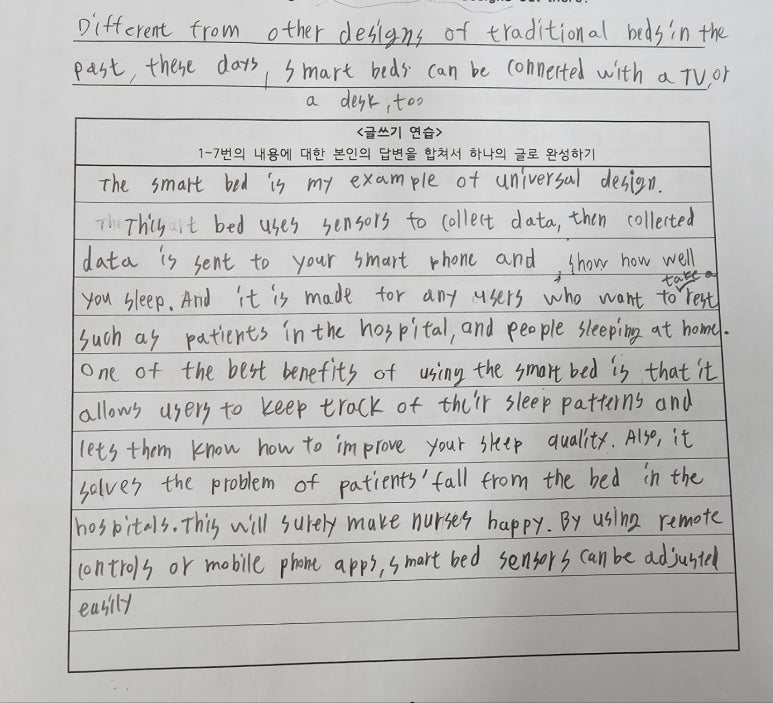 Different from other designs of traditional beds in the
past, these days, smart beds can be connected with a TV, or
a desk, too
<글쓰기 연습>
1~7번의 내용에 대한 본인의 답변을 합쳐서 하나의 글로 완성하기
The smart bed is my example of universal design.
This bed uses sensors to collect data, then collected
data is sent to your smart phone and , show how well
you sleep. And it is made for any users who want to take a rest
such as patients in the hospital, and people sleeping at home.
One of the best benefits of using the smart bed is that it
allows users to keep track of their sleep patterns and
lets them know how to improve your sleep quality. Also, it
solves the problem of patients' fall from the bed in the
hospitals. This will surely make nurses happy. By using remote
controls or mobile phone apps, smart bed sensors can be adjusted
easily